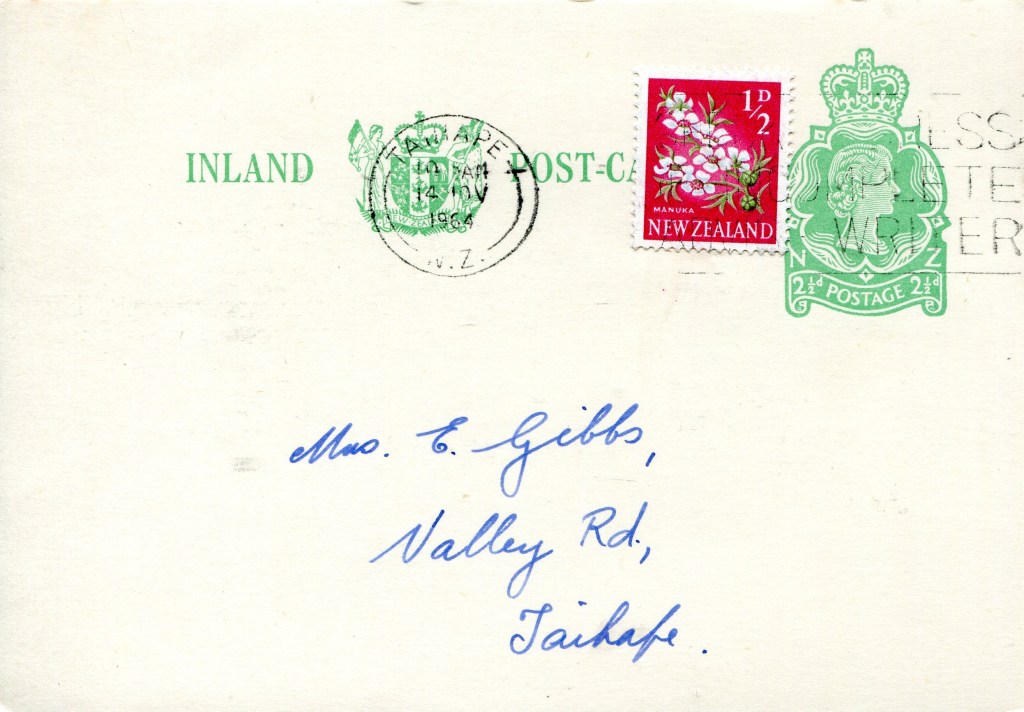 INLAND POST-CA
TAIHAPE
10 AM
14
1964
N.Z.
1/2 D
MANUKA
NEW ZEALAND
COMPLETE
WRITER
N Z
2½d POSTAGE 2½d
Mrs. E. Gibbs,
Valley Rd,
Taihape.